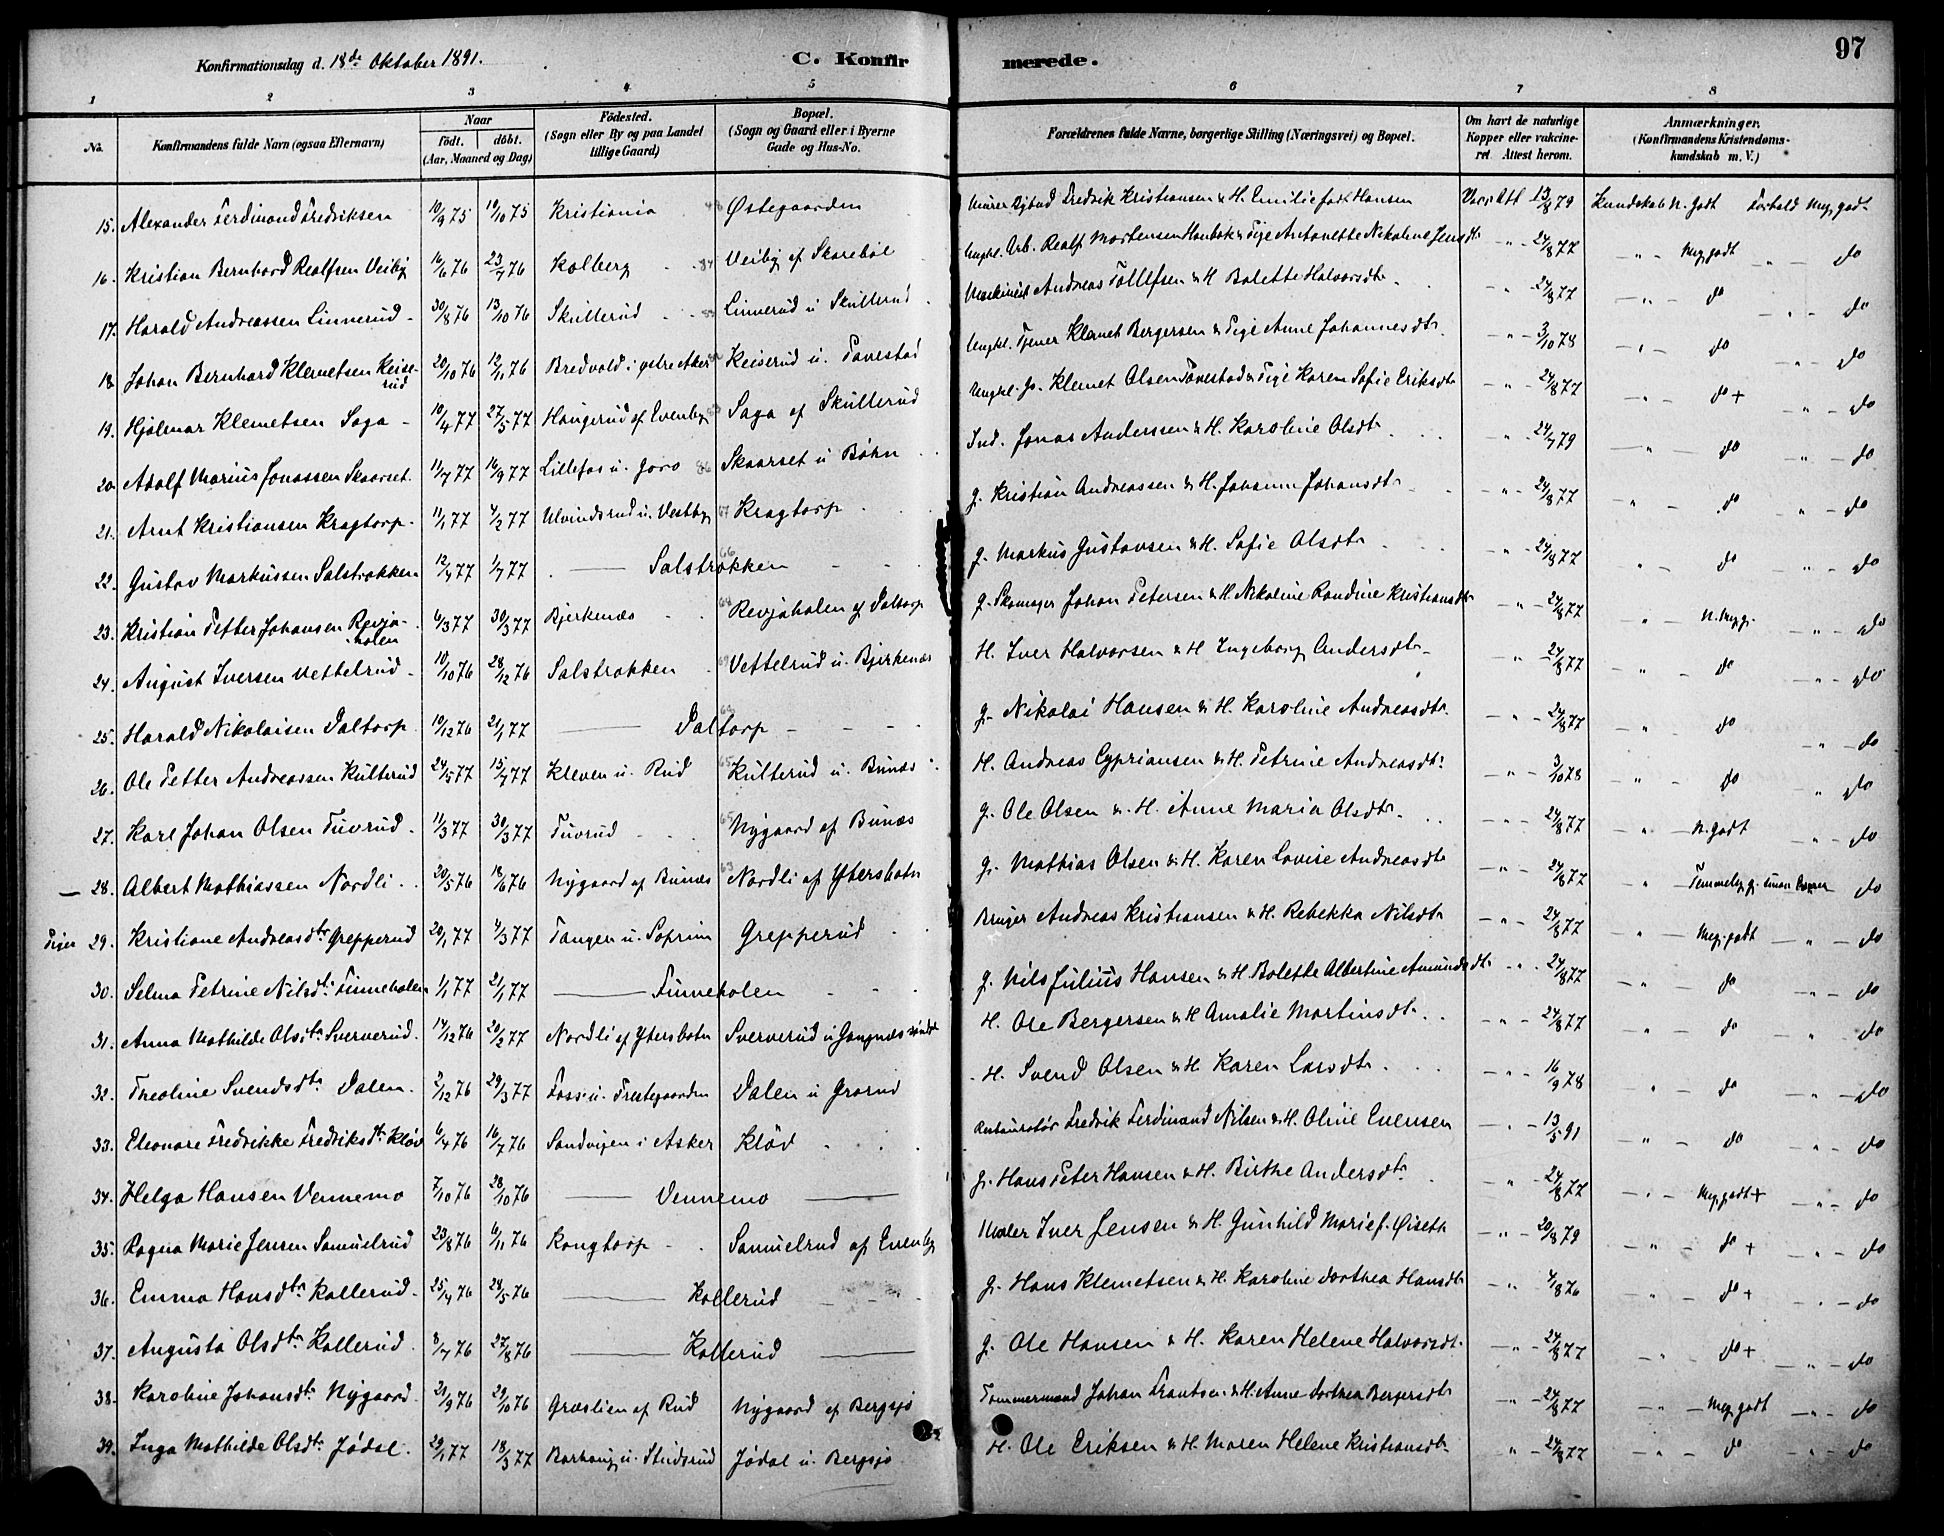 Konfirmationsdag d. 18de Oktober 1891. C. Konfirmerede. 97
1 2 3 4 5 6 7 8
No. Konfirmandens fulde Navn (ogsaa Efternavn) Naar födt. döbt. (Aar, Maaned og Dag) Födested. (Sogn eller By og paa Landet tillige Gaard) Bopæl. (Sogn og Gaard eller i Byerne Gade og Hus-No. Forældrenes fulde Navne, borgerlige Stilling (Næringsvei) og Bopæl. Om havt de naturlige Kopper eller vakcineret. Attest herom. Anmærkninger. (Konfirmandens Kristendomskundskab m. V.)
15. Alexander Ferdinand Fredriksen 10/9 75 10/10 75 Kristiania Østegaarden Fredrik Kristiansen & H. Emilie Hansen 13/8 79 Kundskab N. godt Forhold Meg. godt
16. Kristian Bernhard Realfsen Veiby 16/6 76 23/7 76 Kolberg 84 Veiby af Skarebøl Ungkl. Arb. Realf Mortensen & Pige Antonette Nikoline Jensdtr - " - 24/8 77 - " - Meg. godt - " - do
17. Harald Andreassen Linnerud 30/8 76 13/10 76 Skullerud Linnerud u. Skullerud Maskinist Andreas Tollefsen & H. Bolette Halvorsdtr - " - 24/8 77 - " - do - " - do
18. Johan Bernhard Klemetsen Keiserud 20/10 76 12/11 76 Bredvold i østre Aker Keiserud u. Tanestad Ungkl. Tjener Klemet Bergersen & Pige Anne Johannesdtr - " - 3/10 78 - " - do - " - do
19. Hjalmar Klemetsen Saga 10/4 77 27/5 77 Haugerud af Evenby Saga af Skullerud Ungkl. g. Klemet Olsen Tanestad & Pige Karen Sofie Eriksdtr - " - 24/8 77 - " - do + - " - do
20. Adolf Marius Jonassen Skaarset 11/7 77 16/9 77 Lillefos u. 86 Skaarset u. Bøhn Ind. Jonas Anderssen & H. Karoline Olsdtr - " - 24/7 79 - " - do - " - do
21. Arnt Kristiansen Kragtorp 11/1 77 4/2 77 Ulvindsrud u. Vestby 67 Kragtorp g. Kristian Andreassen & H. Johanne Johansdtr - " - 24/8 77 " - do " - do
22. Gustav Markussen Salstrokken 12/4 77 1/7 77 Salstrokken 66 g. Markus Gustavsen & H. Sofie Olsdtr - " - 24/8 77 " - do " - do
23. Kristian Petter Johansen Revjaholen 6/3 77 30/3 77 Bjerkenæs Revjaholen af Daltorp g. Skomager Johan Petersen & H. Nikoline Randine Kristiansdtr - " - 24/8 77 " - N. Meg. g. - " - do
24. August Iversen Vettelrud 10/10 76 28/12 76 Salstrokken 69 Vettelrud u. Bjerkenæs H. Iver Halvorsen & H. Ingeborg Andersdtr - " - 24/8 77 " - do - " - do
25. Harald Nikolaisen Daltorp 10/12 76 21/1 77 Daltorp g. Nikolai Hansen & H. Karoline Andreasdtr - " - 24/8 77 " - do " - do
26. Ole Petter Andreassen Kulterud 24/5 77 15/7 77 Kleven u. Rud 65 Kulterud u. Bunæs H. Andreas Cypriansen & H. Petrine Andreasdtr - " - 3/10 78 " - do " - do
27. Karl Johan Olsen Tuvrud 11/3 77 30/3 77 Tuvrud 65 Nygaard af Bunæs g. Ole Olsen & H. Anne Maria Olsdtr - " - 24/8 77 " - N. godt - " - do
28. Albert Mathiassen Nordli 20/5 76 18/6 76 Nygaard af Bunæs 63 Nordli af Ytersbotn g. Mathias Olsen & H. Karen Lovise Andreasdtr - " - 24/8 77 " - Temmelig g. - do
Piger 29. Kristiane Andreasdtr Grepperud 20/1 77 4/3 77 Tangen u. Soprim Grepperud Bruger Andreas Kristiansen & H. Rebekka Nilsdtr - " - 24/8 77 " - Meg. godt - " - do
30. Selma Petrine Nilsdtr Finneholen 1/1 77 21/1 77 Finneholen g. Nils Julius Hansen & H. Bolette Albertine Amundsdtr " - 24/8 77 - " - do - " - do
31. Anna Mathilde Olsdtr Sververud 14/12 76 20/2 77 Nordli af Ytersbotn Sververud u. Gangnæs H. Ole Bergersen & H. Amalie Martinsdtr - " - 24/8 77 - " - do - " - do
32. Theoline Svendsdtr Dalen 2/12 76 29/3 77 Foss u. Prestegaarden Dalen u. Grorud H. Svend Olsen & H. Karen Larsdtr - " - 16/9 78 " - do - " - do
33. Eleonore Fredrikke Fredriksdtr Kløv 6/4 76 16/7 76 Sandvigen i Asker Kløv Restauratør Fredrik Ferdinand Nilsen & H. Oline Evensen - " - 13/5 91 - " - do - " - do
34. Helga Hansen Vennemo 7/10 76 28/10 76 Vennemo g. Hans Peter Hansen & H. Birthe Andersdtr - " - 24/8 77 - " - Meg. godt + " - do
35. Ragna Marie Jensen Samuelrud 23/8 76 6/11 76 Kongtorp Samuelrud af Evenby Maler Iver Jensen & H. Gunhild Marie f. Øiseth - " - 20/8 79 - " - do + - " - do
36. Emma Hansdtr Kallerud 25/4 76 28/5 76 Kallerud g. Hans Klemetsen & H. Karoline Dorthea Hansdtr - " - 4/8 76 " - do + - " - do
37. Augusta Olsdtr Kallerud 8/7 76 27/8 76 Kallerud g. Ole Hansen & H. Karen Helene Halvorsdtr - " - 24/8 77 - " - do + - " - do
38. Karoline Johansdtr Nygaard 21/9 76 29/10 76 Græslien af Rud Nygaard af Bergsjø Tømmermand Johan Frantsen & H. Anne Dorthea Bergersdtr - " - 24/8 77 - " - Meg. godt - " - do
39. Inga Mathilde Olsdtr Jødal 29/1 77 18/3 77 Barhaug u. Studsrud Jødal u. Bergsjø H. Ole Eriksen & H. Maren Helene Kristiansdtr " - 24/8 77 - " - do - " - do